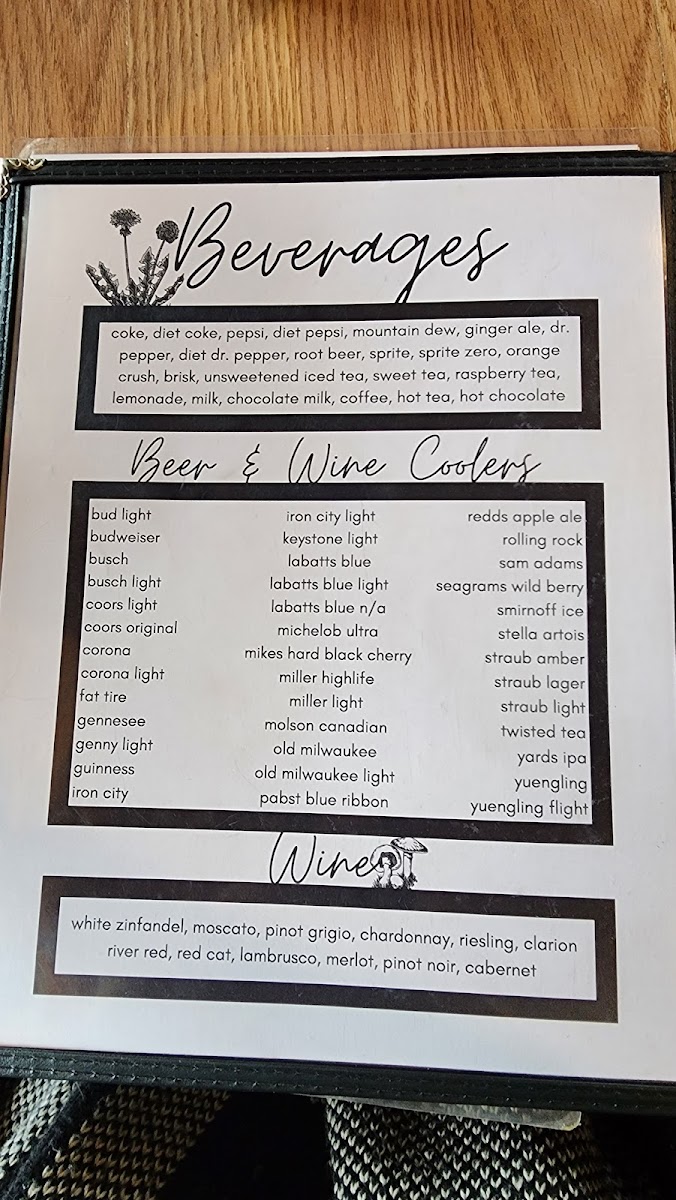 Beverages
coke, diet coke, pepsi, diet pepsi, mountain dew, ginger ale, dr.
pepper, diet dr. pepper, root beer, sprite, sprite zero, orange
crush, brisk, unsweetened iced tea, sweet tea, raspberry tea,
lemonade, milk, chocolate milk, coffee, hot tea, hot chocolate
Beer & Wine Coolers
bud light
budweiser
busch
busch light
coors light
coors original
corona
corona light
fat tire
gennesee
genny light
guinness
iron city
iron city light
keystone light
labatts blue
labatts blue light
labatts blue n/a
michelob ultra
mikes hard black cherry
miller highlife
miller light
molson canadian
old milwaukee
old milwaukee light
pabst blue ribbon
redds apple ale
rolling rock
sam adams
seagrams wild berry
smirnoff ice
stella artois
straub amber
straub lager
straub light
twisted tea
yards ipa
yuengling
yuengling flight
Wine
white zinfandel, moscato, pinot grigio, chardonnay, riesling, clarion
river red, red cat, lambrusco, merlot, pinot noir, cabernet